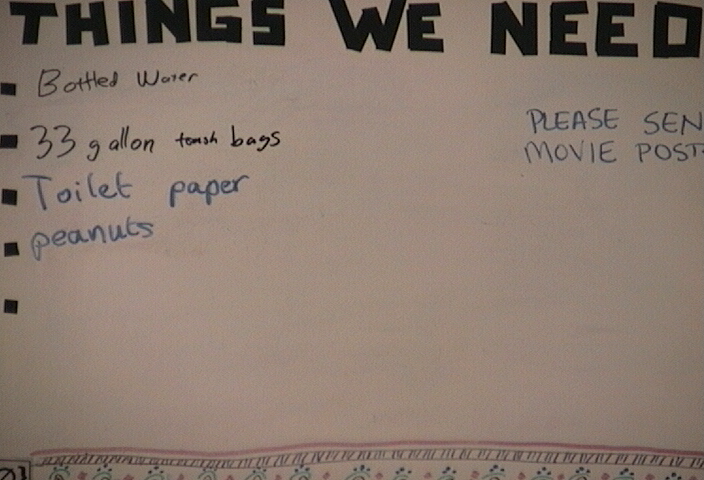 THINGS WE NEED
Bottled Water
33 gallon trash bags
Toilet paper
peanuts
PLEASE SEN
MOVIE POST